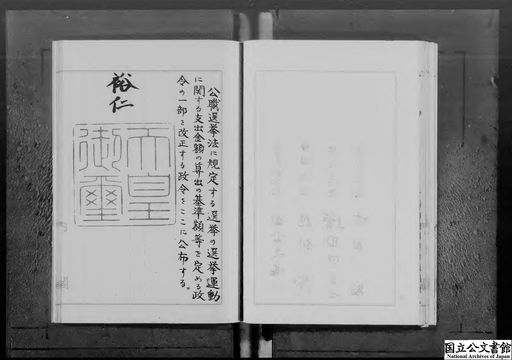 公職選挙法に規定する選挙の選挙運動
に関する支出金額の算出の基準額等を定める政
令の一部を改正する政令をここに公布する。
裕仁
天皇
御璽
国立公文書館
National Archives of Japan